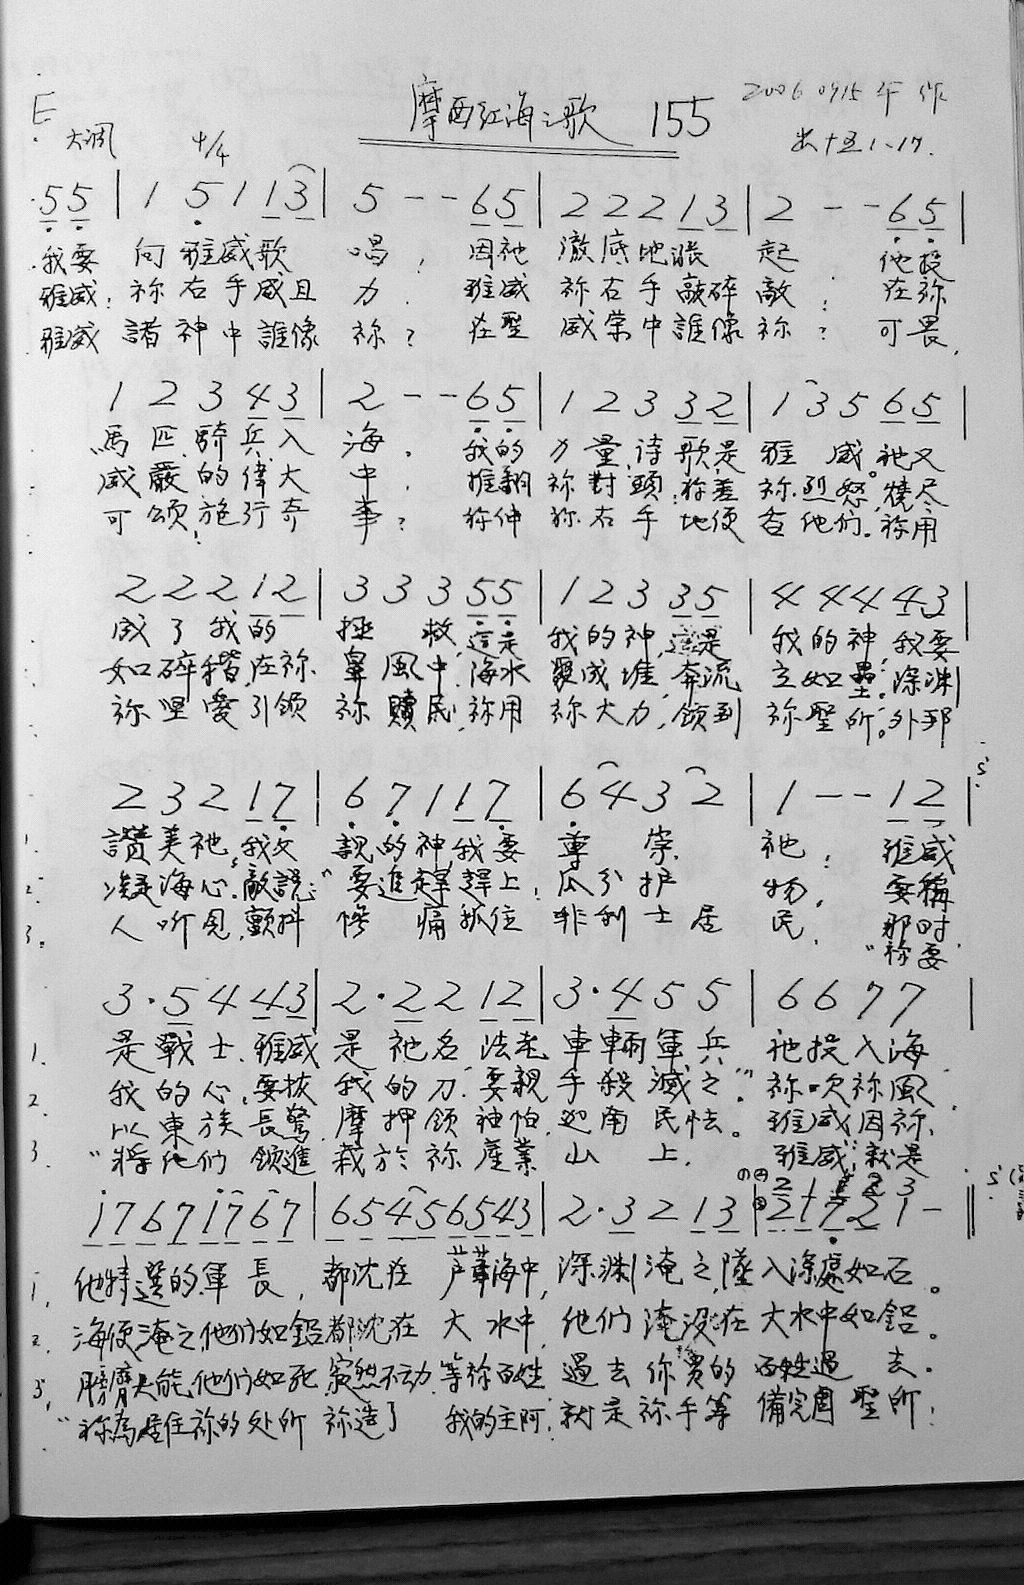 摩西紅海之歌 155
2006 0915 年 作
E 大調 4/4
出十五1-17.
55 | 1 5 1 13 | 5 - - 65 | 2 2 2 13 | 2 - - 65 |
我要 向雅威歌 唱, 因祂 澈底地漲 起 他投
雅威: 祢右手威且 力. 雅威 祢右手敲碎敵: 在祢
雅威 諸神中誰像 祢? 在聖 威榮中誰像祢? 可畏,
1 2 3 43 | 2 - - 65 | 1 2 3 32 | 1 3 5 65 |
馬匹騎兵入 海. 我的 力量,诗歌是 雅威。祂又
威嚴的偉大 中, 推翻 祢對頭,祢差 祢烈怒,燒尽
可頌,施行奇 事? 祢伸 祢右手 地便 吞他们。祢用
2 2 2 12 | 3 3 3 55 | 1 2 3 35 | 4 4 4 43 |
成了我的 拯救,這是 我的神,這是 我的神,我要
如碎稭,在祢 鼻風中,海水 聚成堆,奔流 立如壘;深渊
祢堅愛引领 祢贖民,祢用 祢大力,领到 祢聖所。外邦
2 3 2 17 | 6 7 1 17 | 6 4 3 2 | 1 - - 12 |
1. 讚美祂,我父 親的神,我要 尊崇 祂: 雅威
2. 凝海心。敵説:“要進趕趕上; 瓜分掳 物, 要稱
3. 人听見,顫抖 慘痛抓住 非利士居 民. 那时
“祢要
3·5 4 43 | 2·2 2 12 | 3·4 5 5 | 6 6 7 7 |
1. 是戰士.雅威 是祂名.法老 車輛軍兵 祂投入海
2. 我的心,要拔 我的刀.要親 手殺滅之”。祢吹祢風,
3. 以東族長驚.摩押领袖怕,迦南民怯。雅威因祢
“將他們领進 栽於祢產業 山上. 雅威;就是
17671767 | 65456543 | 2·3 2 13 | 21721 - ‖
1, 他特選的軍長, 都沈在 芦葦海中,深渊淹之,墜入深處如石。
2. 海便淹之,他们如鉛都沈在 大水中, 他们淹没在大水中如鉛。
3, 膀臂大能,他们如死寂然不动.等祢百姓 過去你買的百姓過去.
“祢為居住祢的处所 祢造了 我的主阿;就是祢手筹備完固聖所: